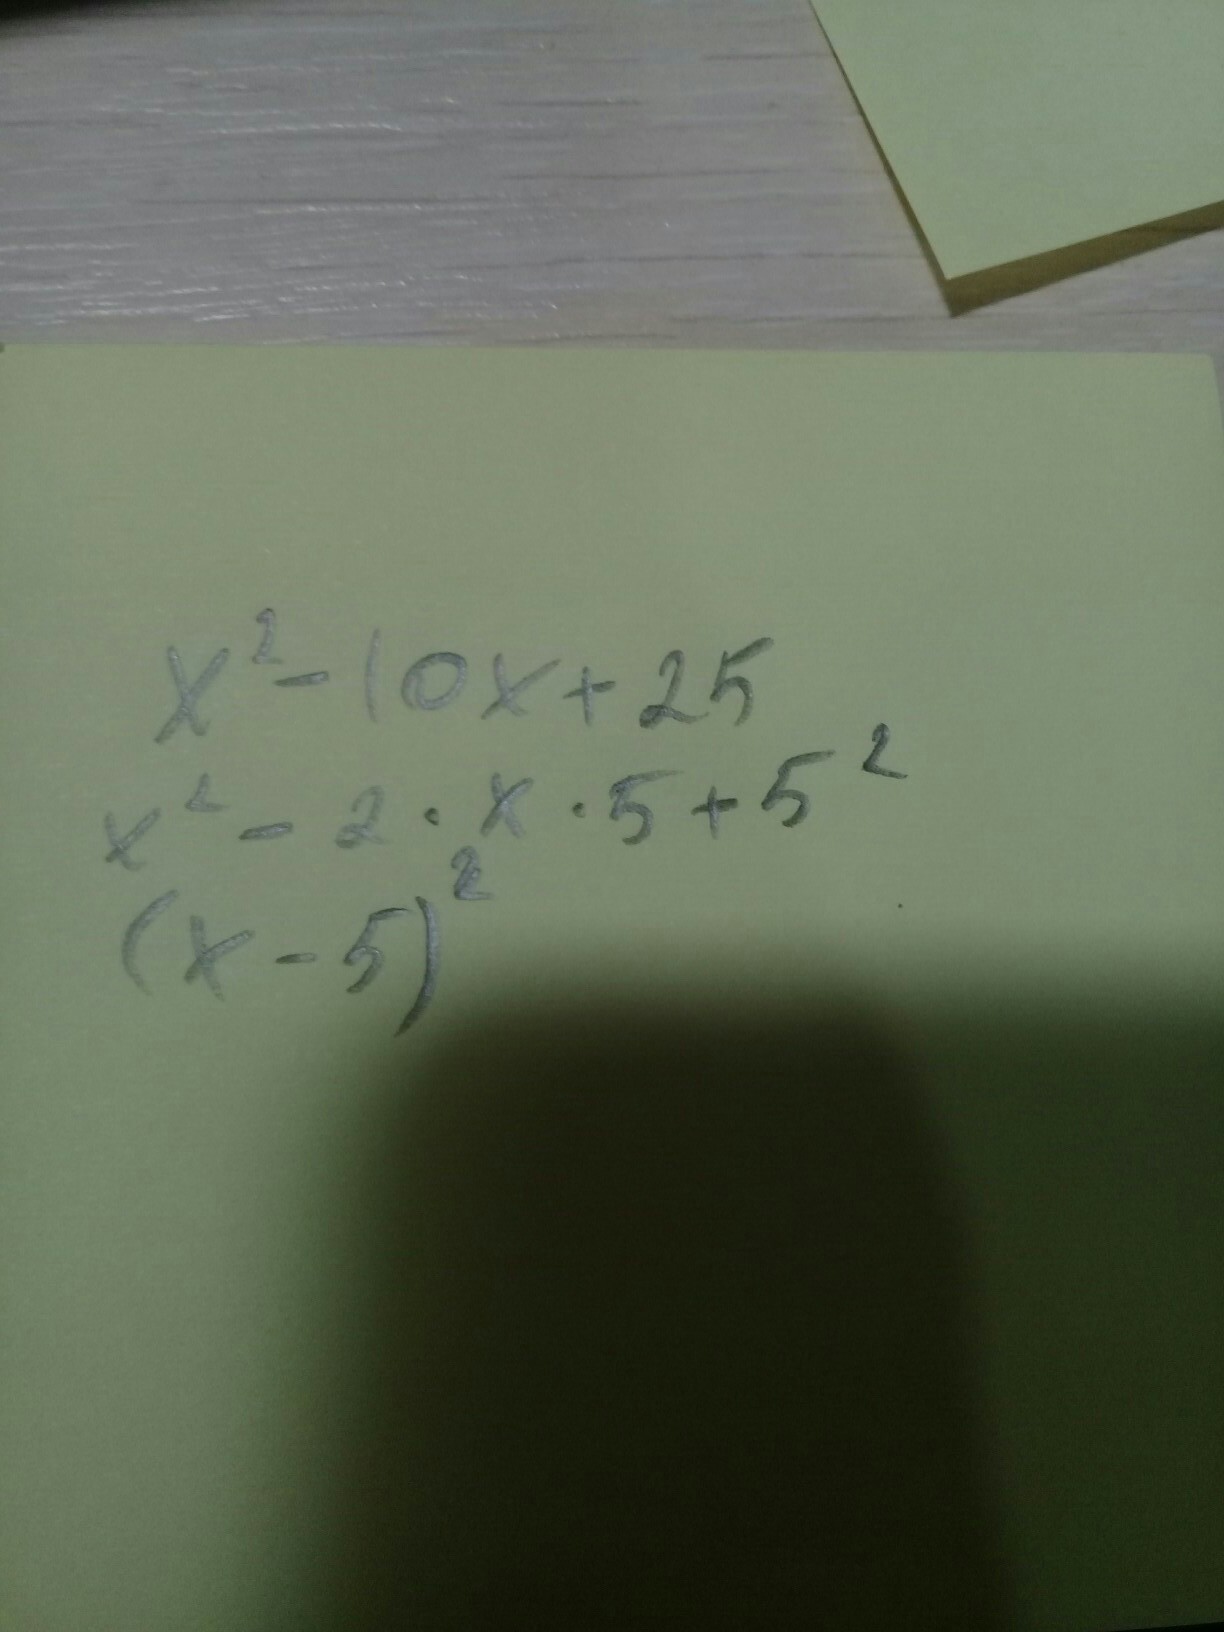 x² - 10x + 25
x² - 2 · x · 5 + 5²
(x - 5)²